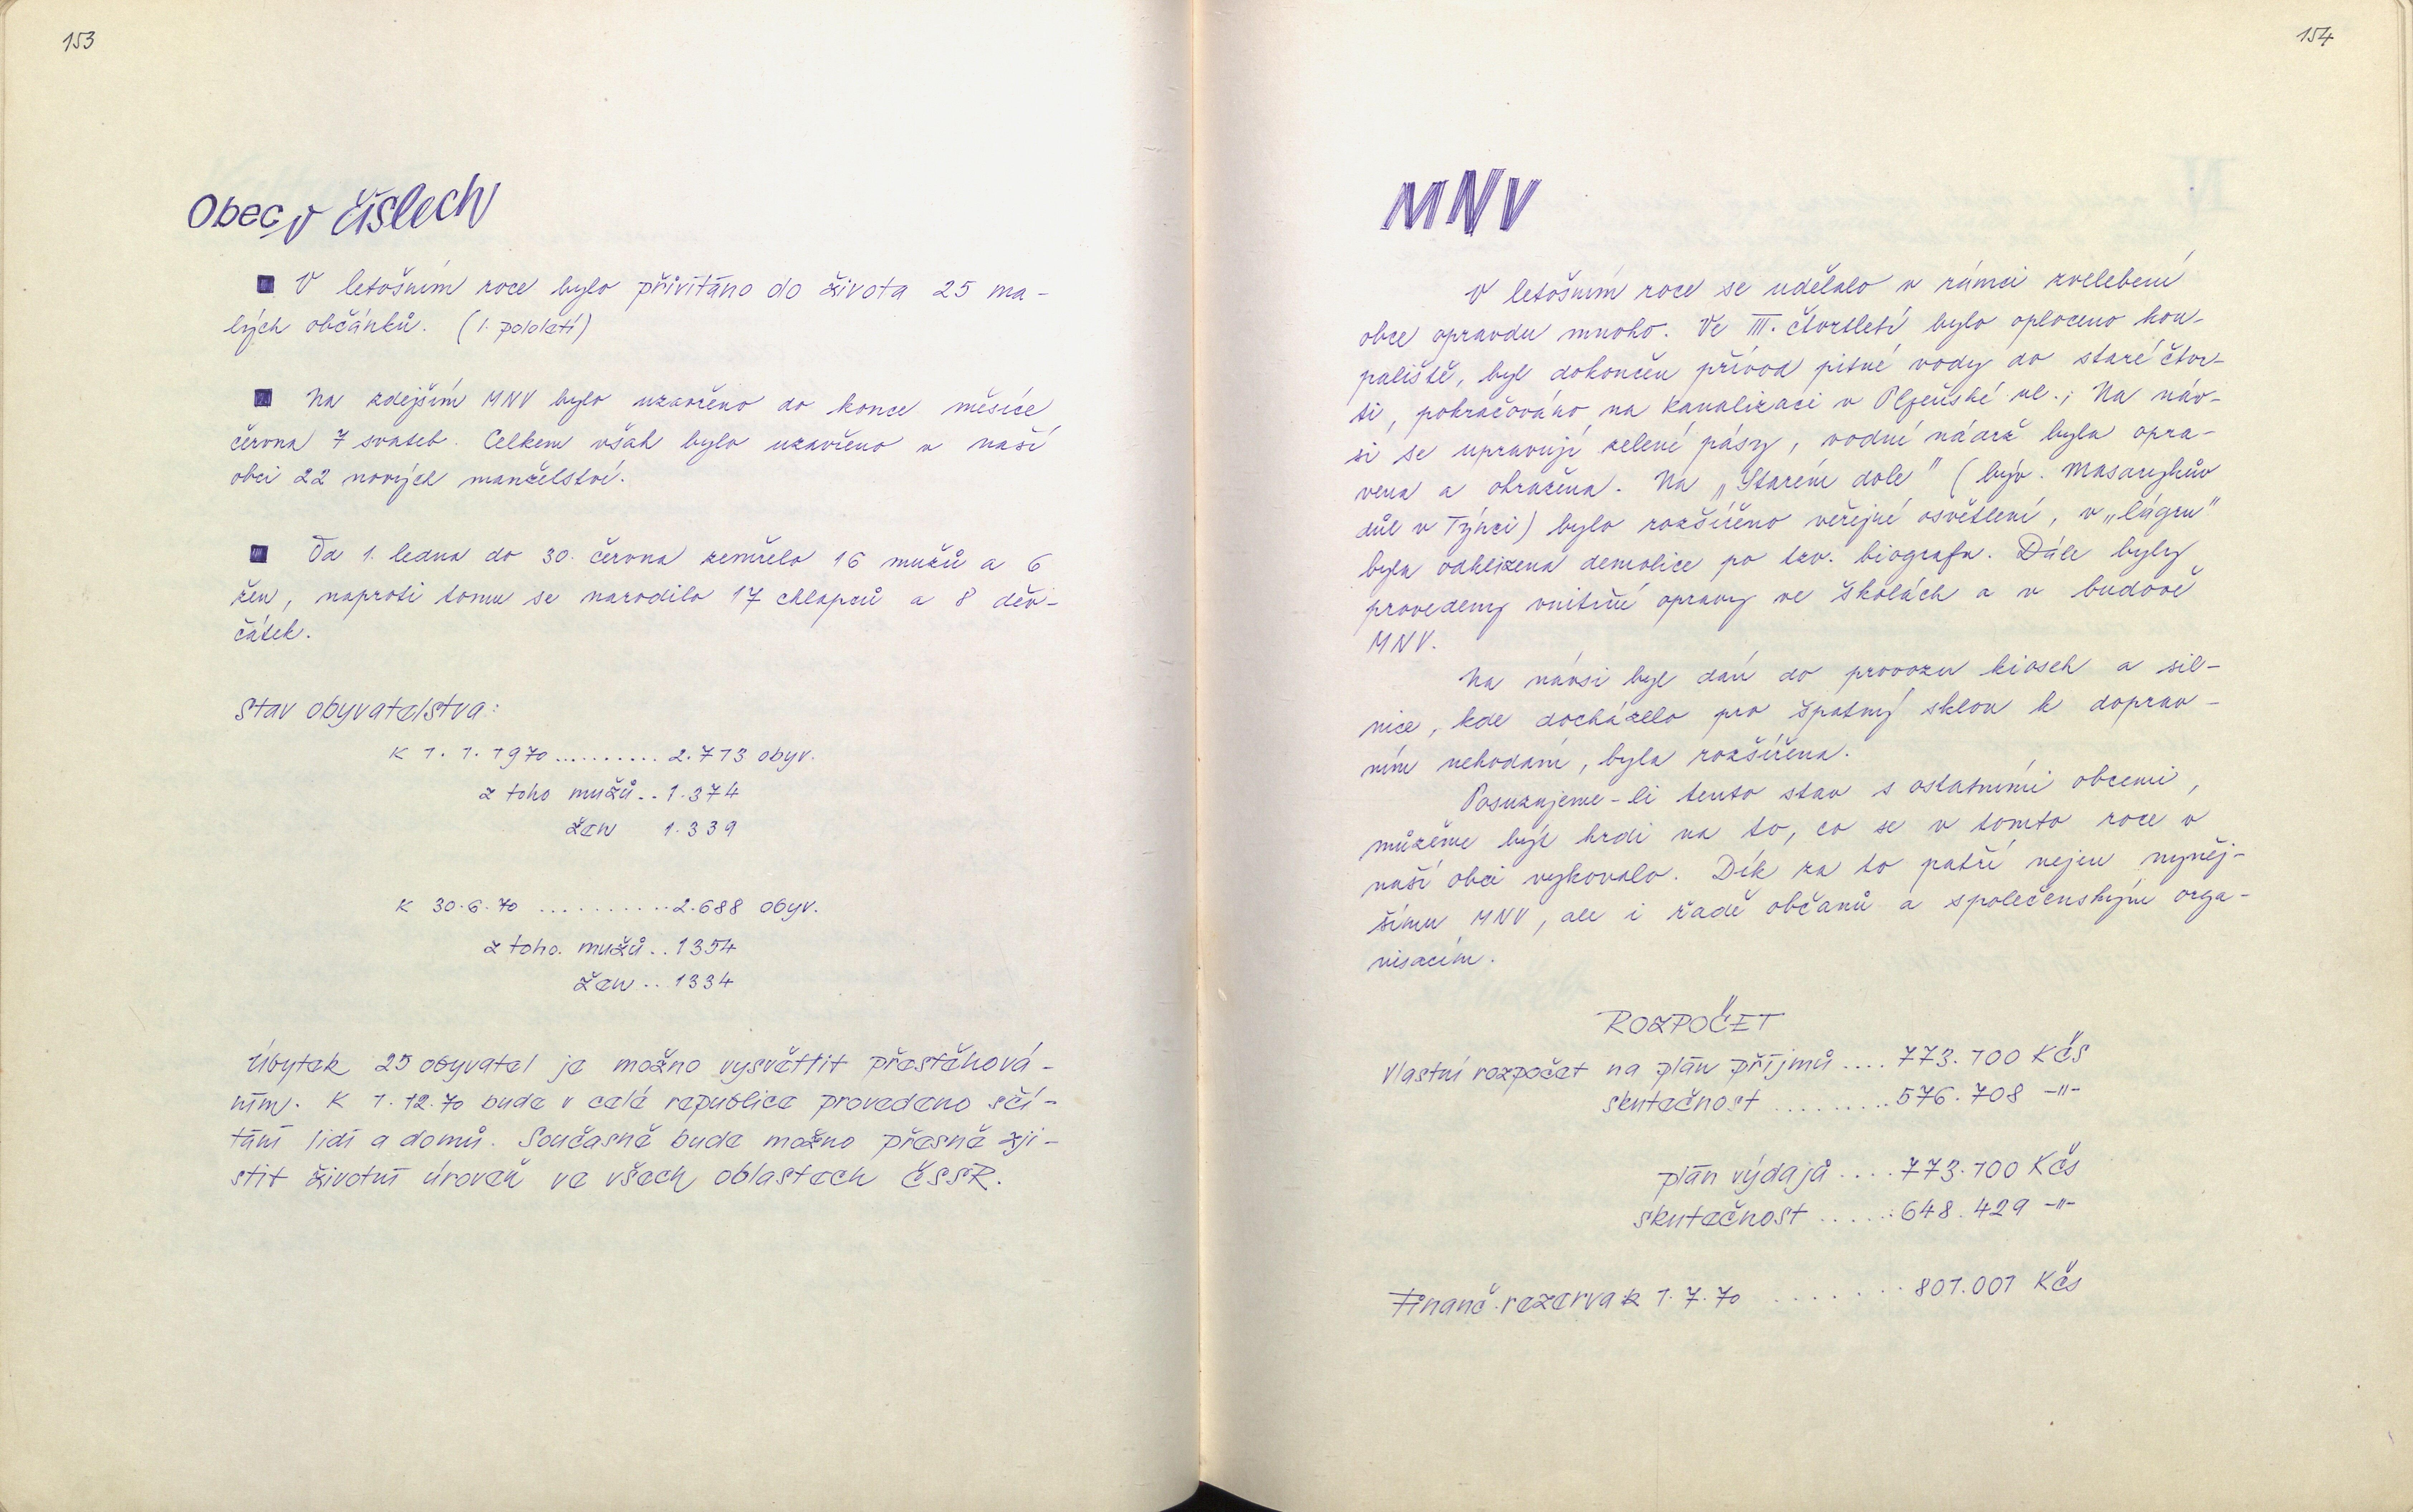 153
Obec v číslech
■ V letošním roce bylo přivítáno do života 25 ma-
lých občánků. (1. pololetí)
■ Na zdejším MNV bylo uzavřeno do konce měsíce
června 7 svateb. Celkem však bylo uzavřeno v naší
obci 22 nových manželství.
■ Od 1. ledna do 30. června zemřelo 16 mužů a 6
žen, naproti tomu se narodilo 17 chlapců a 8 děv-
čátek.
Stav obyvatelstva:
K 1. 1. 1970 .......... 2.713 obyv.
z toho mužů .. 1.374
žen 1.339
K 30.6.70 .......... 2.688 obyv.
z toho. mužů .. 1354
žen .. 1334
Úbytek 25 obyvatel je možno vysvětlit přestěhová-
ním. K 1.12.70 bude v celé republice provedeno sčí-
tání lidí a domů. Současně bude možno přesně zji-
stit životní úroveň ve všech oblastech ČSSR.
154
MNV
V letošním roce se udělalo v rámci zvelebení
obce opravdu mnoho. Ve III. čtvrtletí bylo oploceno kou-
paliště, byl dokončen přívod pitné vody do staré čtvr-
ti, pokračováno na kanalizaci v Plzeňské ul.; Na náv-
si se upravují zelené pásy, vodní nádrž byla opra-
vena a ohrazena. Na „Starém dole" (býv. Masarykův
důl v Týnci) bylo rozšířeno veřejné osvětlení, v „lágru"
byla odklizena demolice po tzv. biografu. Dále byly
provedeny vnitřní opravy ve školách a v budově
MNV.
Na návsi byl dán do provozu kiosek a sil-
nice, kde docházelo pro špatný sklon k doprav-
ním nehodám, byla rozšířena.
Posuzujeme-li tento stav s ostatními obcemi,
můžeme být hrdi na to, co se v tomto roce v
naší obci vykonalo. Dík za to patří nejen nyněj-
šímu MNV, ale i řadě občanů a společenským orga-
nisacím.
ROZPOČET
Vlastní rozpočet na plán příjmů .... 773.100 Kčs
skutečnost ......... 576.708 -"-
plán výdajů .... 773.100 Kčs
skutečnost ...... 648.429 -"-
Finanč. rezerva k 1.7.70 ....... 801.001 Kčs